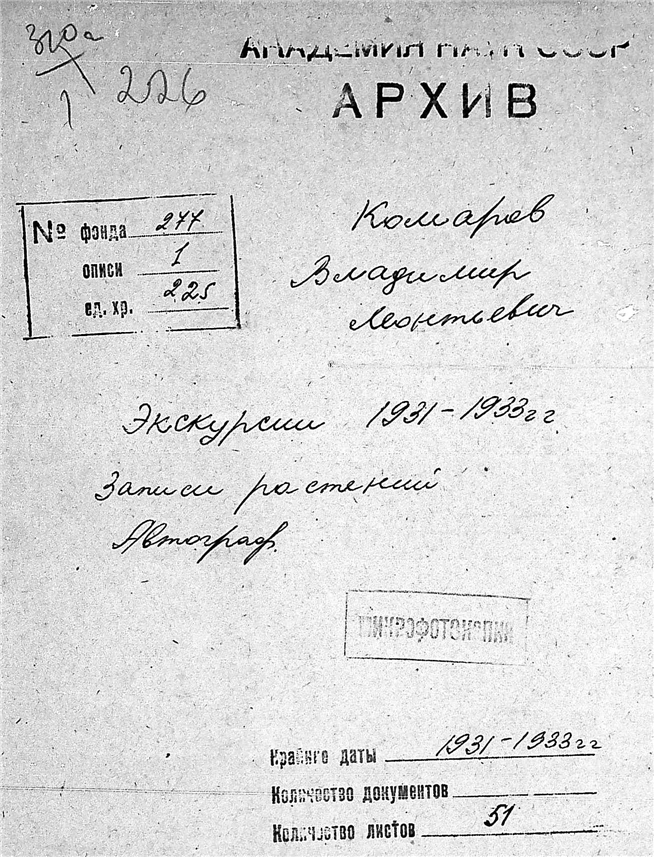 320а
1 226
АКАДЕМИЯ НАУК СССР
АРХИВ
№ фонда 277
описи 1
ед. хр. 225
Комаров
Владимир
Леонтьевич
Экскурсии 1931-1933гг.
Записи растений
Автограф.
МИКРОФОТОКОПИИ
Крайние даты 1931-1933гг
Количество документов
Количество листов 51